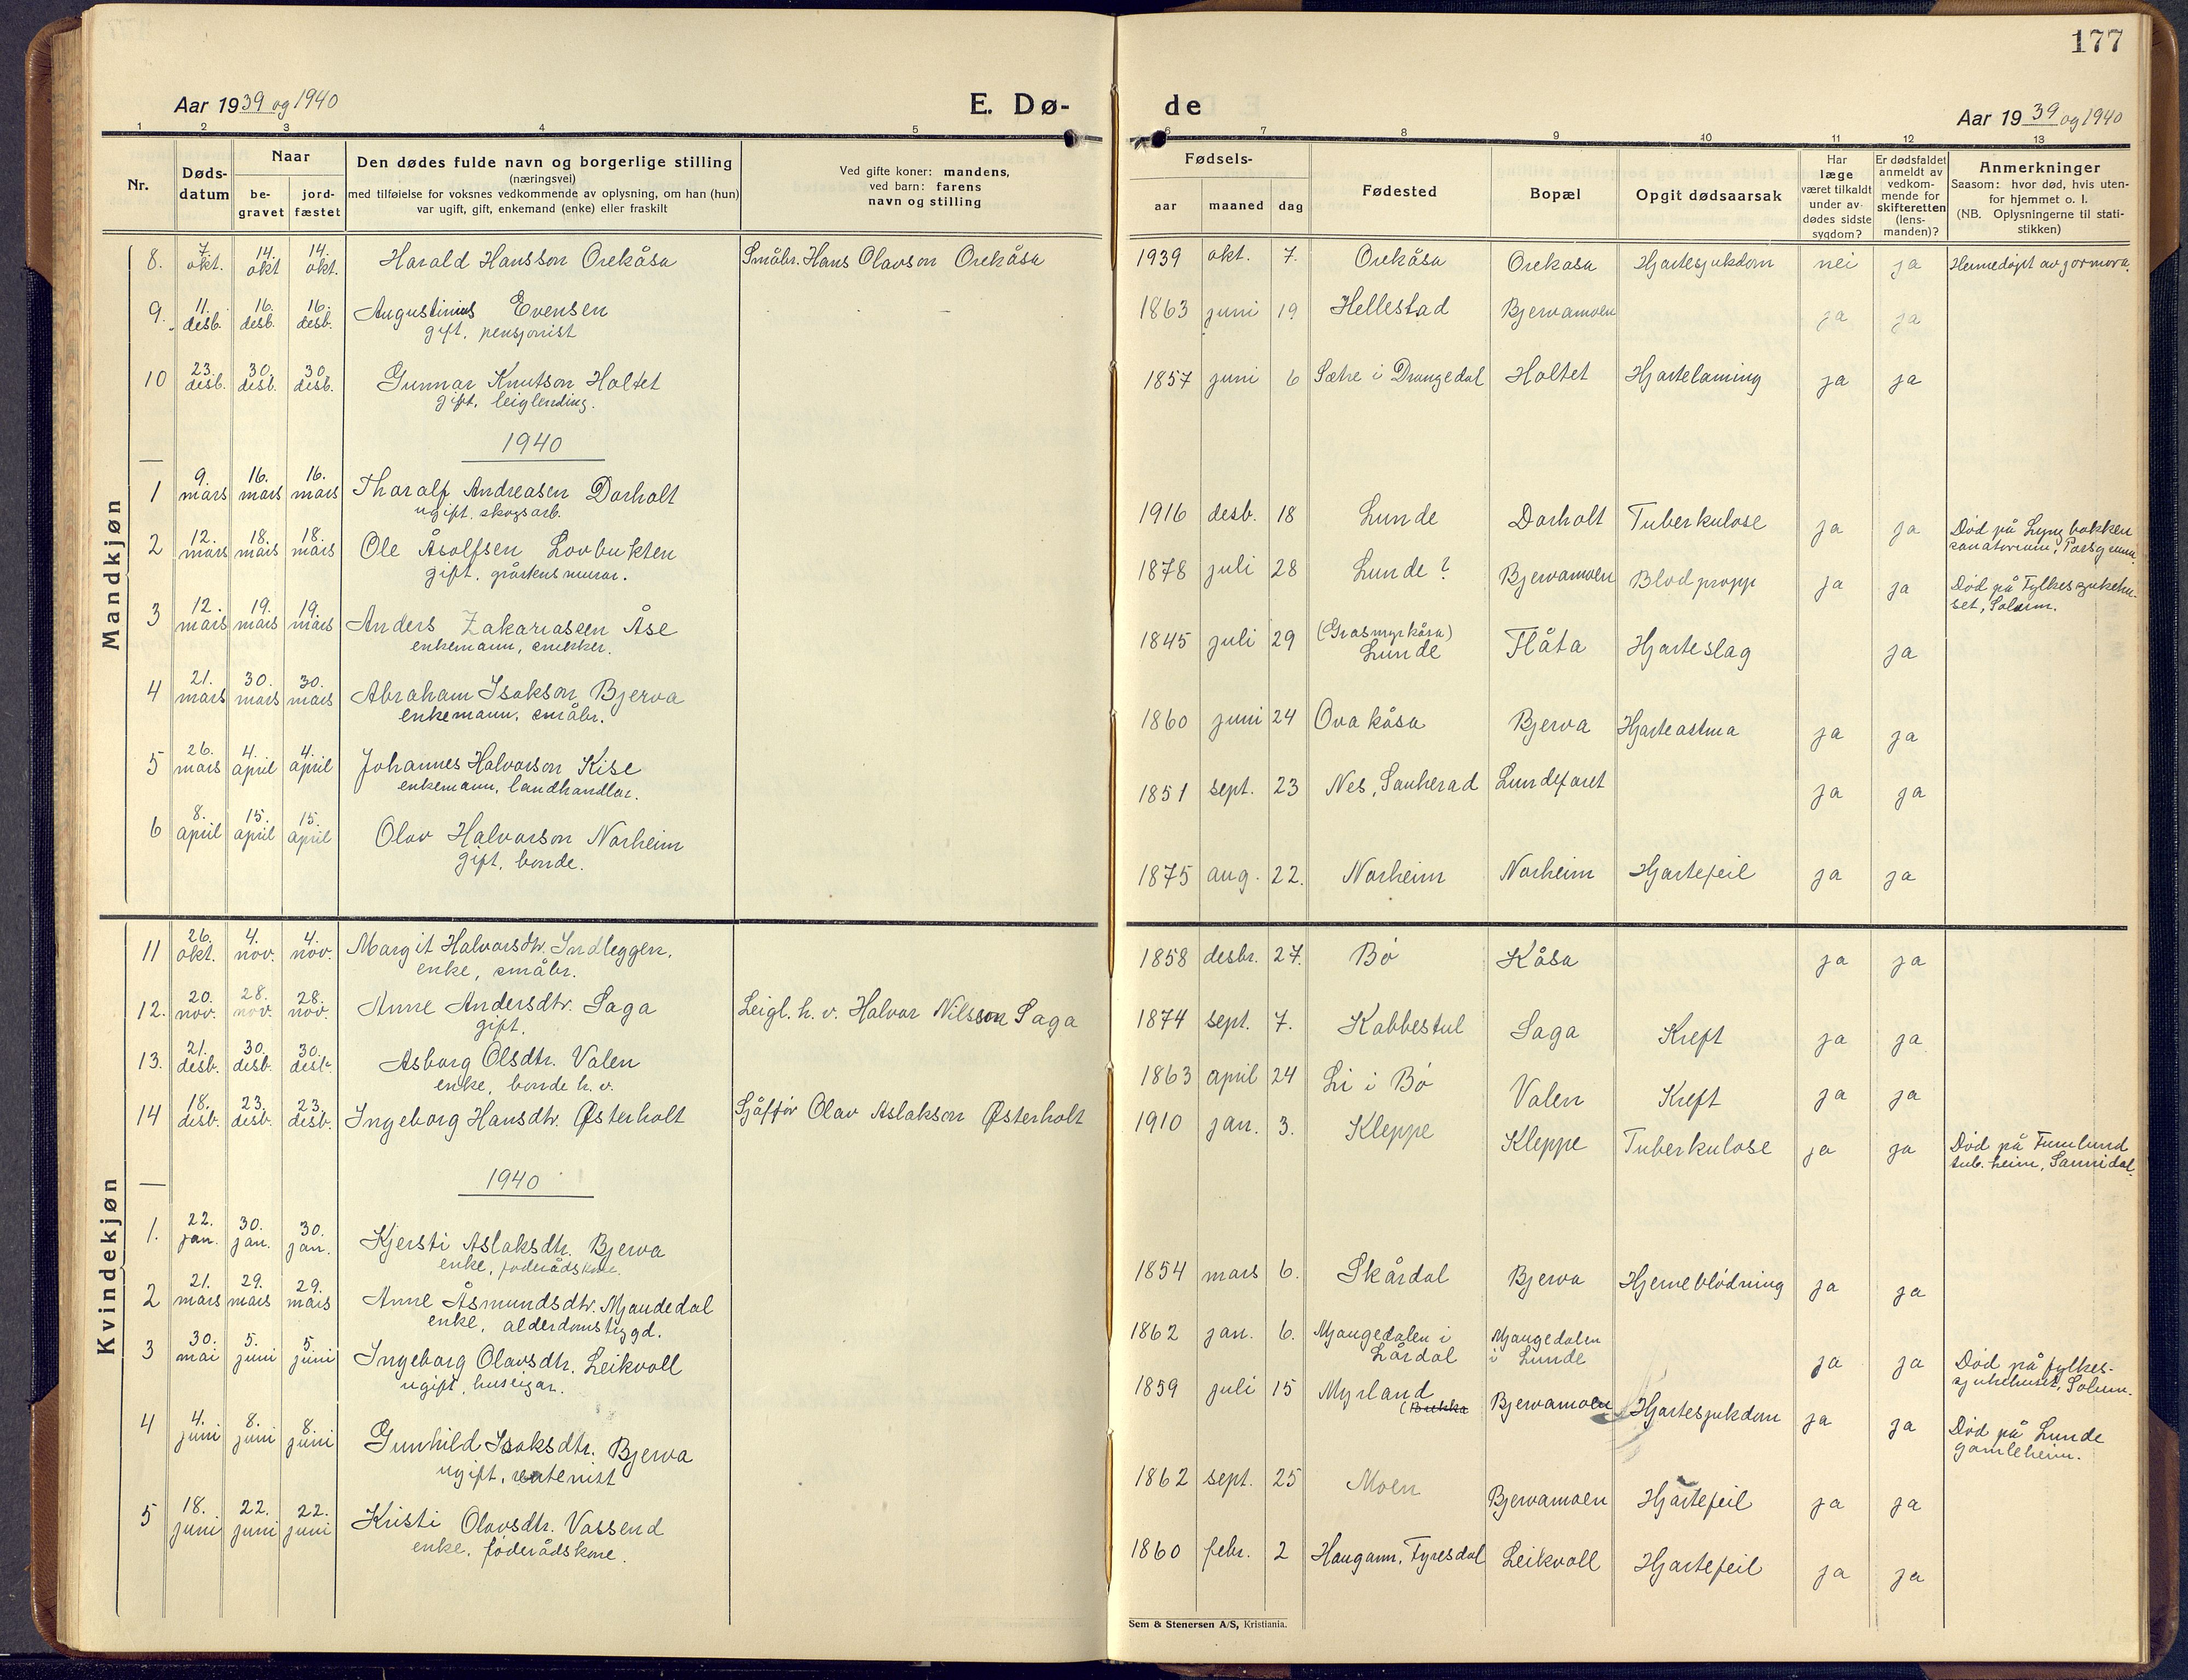 177
Aar 1939 og 1940
E. Dø-
de
Aar 1939 og 1940
1 2 3 4 5 6 7 8 9 10 11 12 13
Nr.
Døds-
datum
Naar
be-
gravet
jord-
fæstet
Den dødes fulde navn og borgerlige stilling
(næringsvei)
med tilføielse for voksnes vedkommende av oplysning, om han (hun)
var ugift, gift, enkemand (enke) eller fraskilt
Ved gifte koner: mandens,
ved barn: farens
navn og stilling
Fødsels-
aar maaned dag
Fødested
Bopæl
Opgit dødsaarsak
Har
læge
været tilkaldt
under av-
dødes sidste
sygdom?
Er dødsfaldet
anmeldt av
vedkom-
mende for
skifteretten
(lens-
manden)?
Anmerkninger
Saasom: hvor død, hvis uten-
for hjemmet o. l.
(NB. Oplysningerne til stati-
stikken)
Mandkjøn
8. 7. okt. 14. okt 14. okt. Harald Hansson Orekåsa Småbr. Hans Olavson Orekåsa 1939 okt. 7. Orekåsa Orekasa Hjartesjukdom nei ja Heimedøpt av jormora.
9. 11. desb. 16. desb. 16. desb. Augustinius Evensen 1863 juni 19 Hellestad Bjervamoen ja ja
gift, pensjonist
10 23. desb. 30. desb. 30. desb. Gunnar Knutson Holtet 1857 juni 6 Sætre i Drangedal Holtet Hjartelaming ja ja
gift, leiglending.
1940
1 9. mars 16. mars 16. mars Tharalf Andreasen Dorholt 1916 desb. 18 Lunde Dorholt Tuberkulose ja ja Død på Lyngbakken
ugift. skogsarb. sanatorium, Porsgrunn
2 12. mars 18. mars 18. mars Ole Åsolfsen Lovbukten 1878 juli 28 Lunde? Bjervamoen Blodpropp ja ja Død på Fylkessjukehu-
gift. gråsteinsmurar. set, Solum.
3 12. mars 19. mars 19. mars Anders Zakariassen Åse 1845 juli 29 (Grasmyrkåsa) Lunde Flåta Hjarteslag ja
enkemann, snikker.
4 21. mars 30. mars 30. mars Abraham Isakson Bjerva 1860 juni 24 Ovakåsa Bjerva Hjarteastma ja ja
enkemann, småbr.
5 26. mars 4. april 4. april Johannes Halvorson Kise 1851 sept. 23 Nes, Sauherad Lundefaret ja ja
enkemann, landhandlar.
6 8. april 15. april 15. april Olav Halvorson Norheim 1875 aug. 22. Norheim Norheim Hjartefeil ja ja
gift, bonde.
Kvindekjøn
11 26. okt. 4. nov. 4. nov. Margit Halvorsdtr. Indleggen, 1858 desbr. 27. Bø Kåsa ja ja
enke, småbr.
12. 20. nov. 28. nov. 28. nov. Anne Andersdtr. Saga Leigl. h. v. Halvor Nilsson Saga 1874 sept. 7. Kabbestul Saga Kreft ja ja
gift.
13. 21. desb. 30. desb. 30. desb. Asborg Olsdtr. Valen 1863 april 24 Li i Bø Valen Kreft ja ja
enke, bonde h. v.
14 18. desb. 23. desb. 23. desb. Ingeborg Hansdtr. Østerholt Sjåffør Olav Aslakson Østerholt 1910 jan. 3. Kleppe Kleppe Tuberkulose ja ja Død på Furulund
tub. heim, Sannidal.
1940
1. 22. jan. 30. jan. 30. jan. Kjersti Aslaksdtr. Bjerva 1854 mars 6. Skårdal Bjerva Hjerneblødning ja ja
enke, føderådskone.
2 21. mars 29. mars 29. mars Anne Åsmundsdtr. Mjaudedal 1862 jan. 6. Mjaugedalen i Lårdal Mjaugedalen i Lunde ja ja Død på fylkes-
enke, alderdomstrygd. sjukehuset, Solum.
3 30. mai 5. juni 5. juni Ingeborg Olavsdtr. Leikvoll 1859 juli 15 Myrland Bjervamoen Hjartesjukdom ja ja Død på Lunde
ugift, huseigar. gamleheim.
4 4. juni 8. juni 8. juni Gunhild Isaksdtr. Bjerva 1862 sept. 25 Moen Bjervamoen Hjartefeil ja ja
ugift, rentenist
5 18. juni 22. juni 22. juni Kristi Olavsdtr. Vassend 1860 febr. 2 Haugann, Fyresdal Leikvoll Hjartefeil ja ja
enke, føderådskone.
Sem & Stenersen A/S, Kristiania.